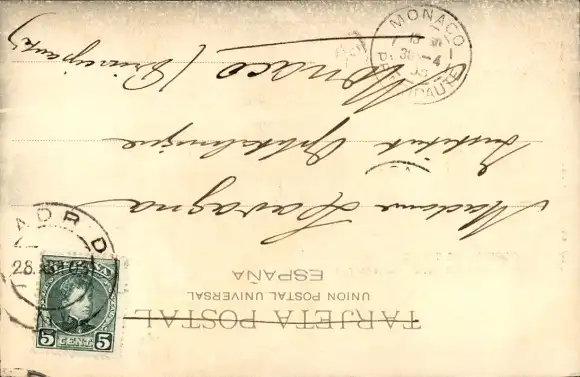 TARJETA POSTAL
UNION POSTAL UNIVERSAL
ESPAÑA
Madame Lavagna
Institut Ophtalmique
Monaco (Principauté)
MONACO
PRINCIPAUTÉ
MADRID
5 CENT 5